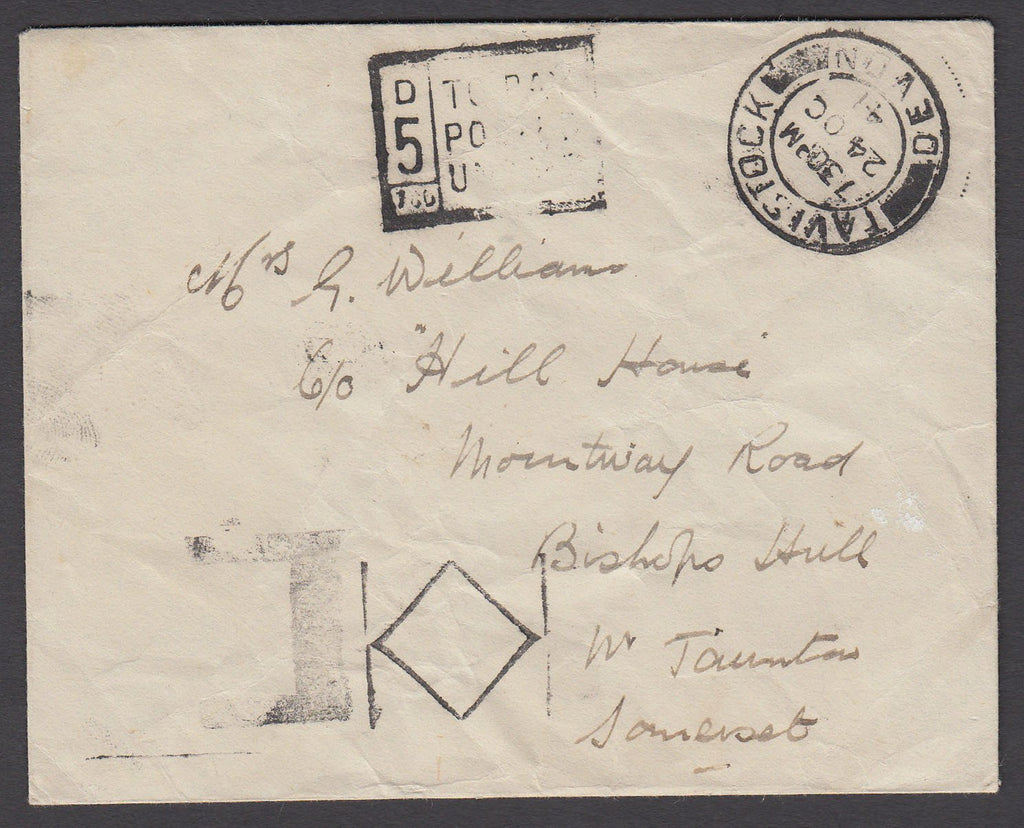 D
5
TO PAY
PO
U
TAVISTOCK DEVON
130PM
24 OC
41
Mrs G. Williams
C/o "Hill House
Mountway Road
Bishops Hull
Nr Taunton
Somerset